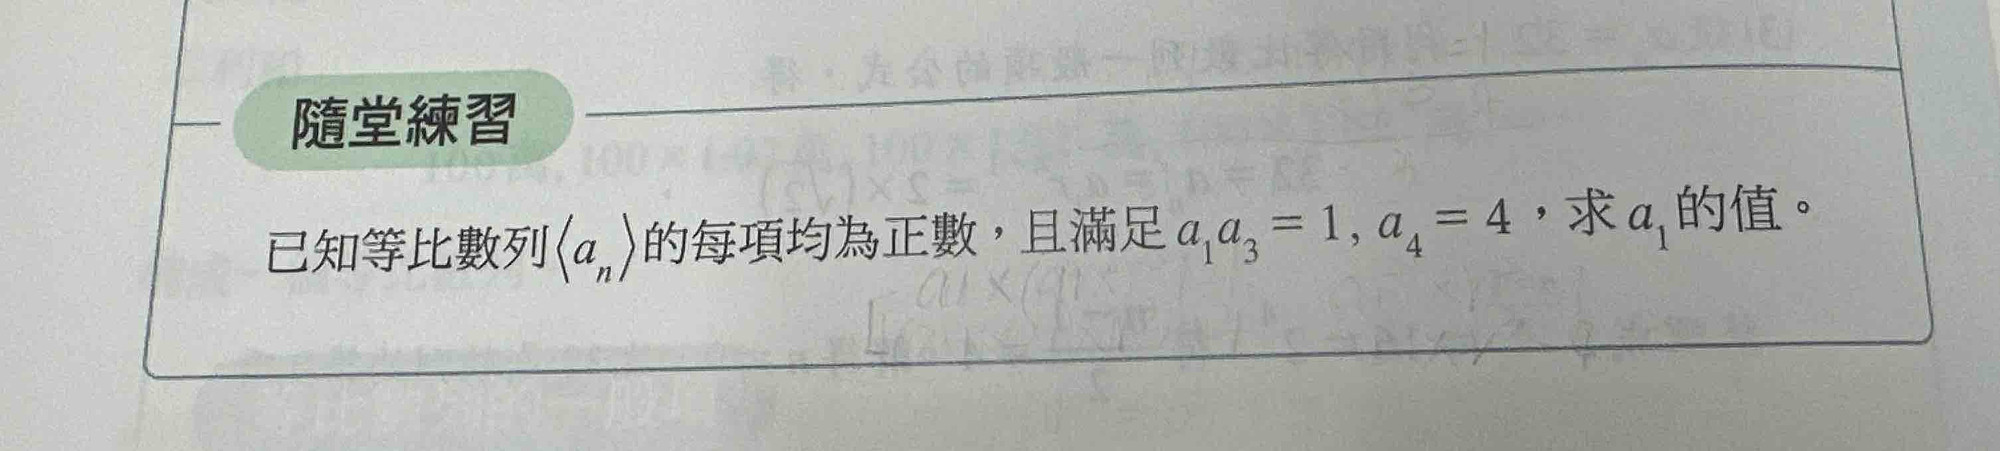 隨堂練習
已知等比數列⟨aₙ⟩的每項均為正數，且滿足 a₁a₃ = 1, a₄ = 4，求 a₁ 的值。